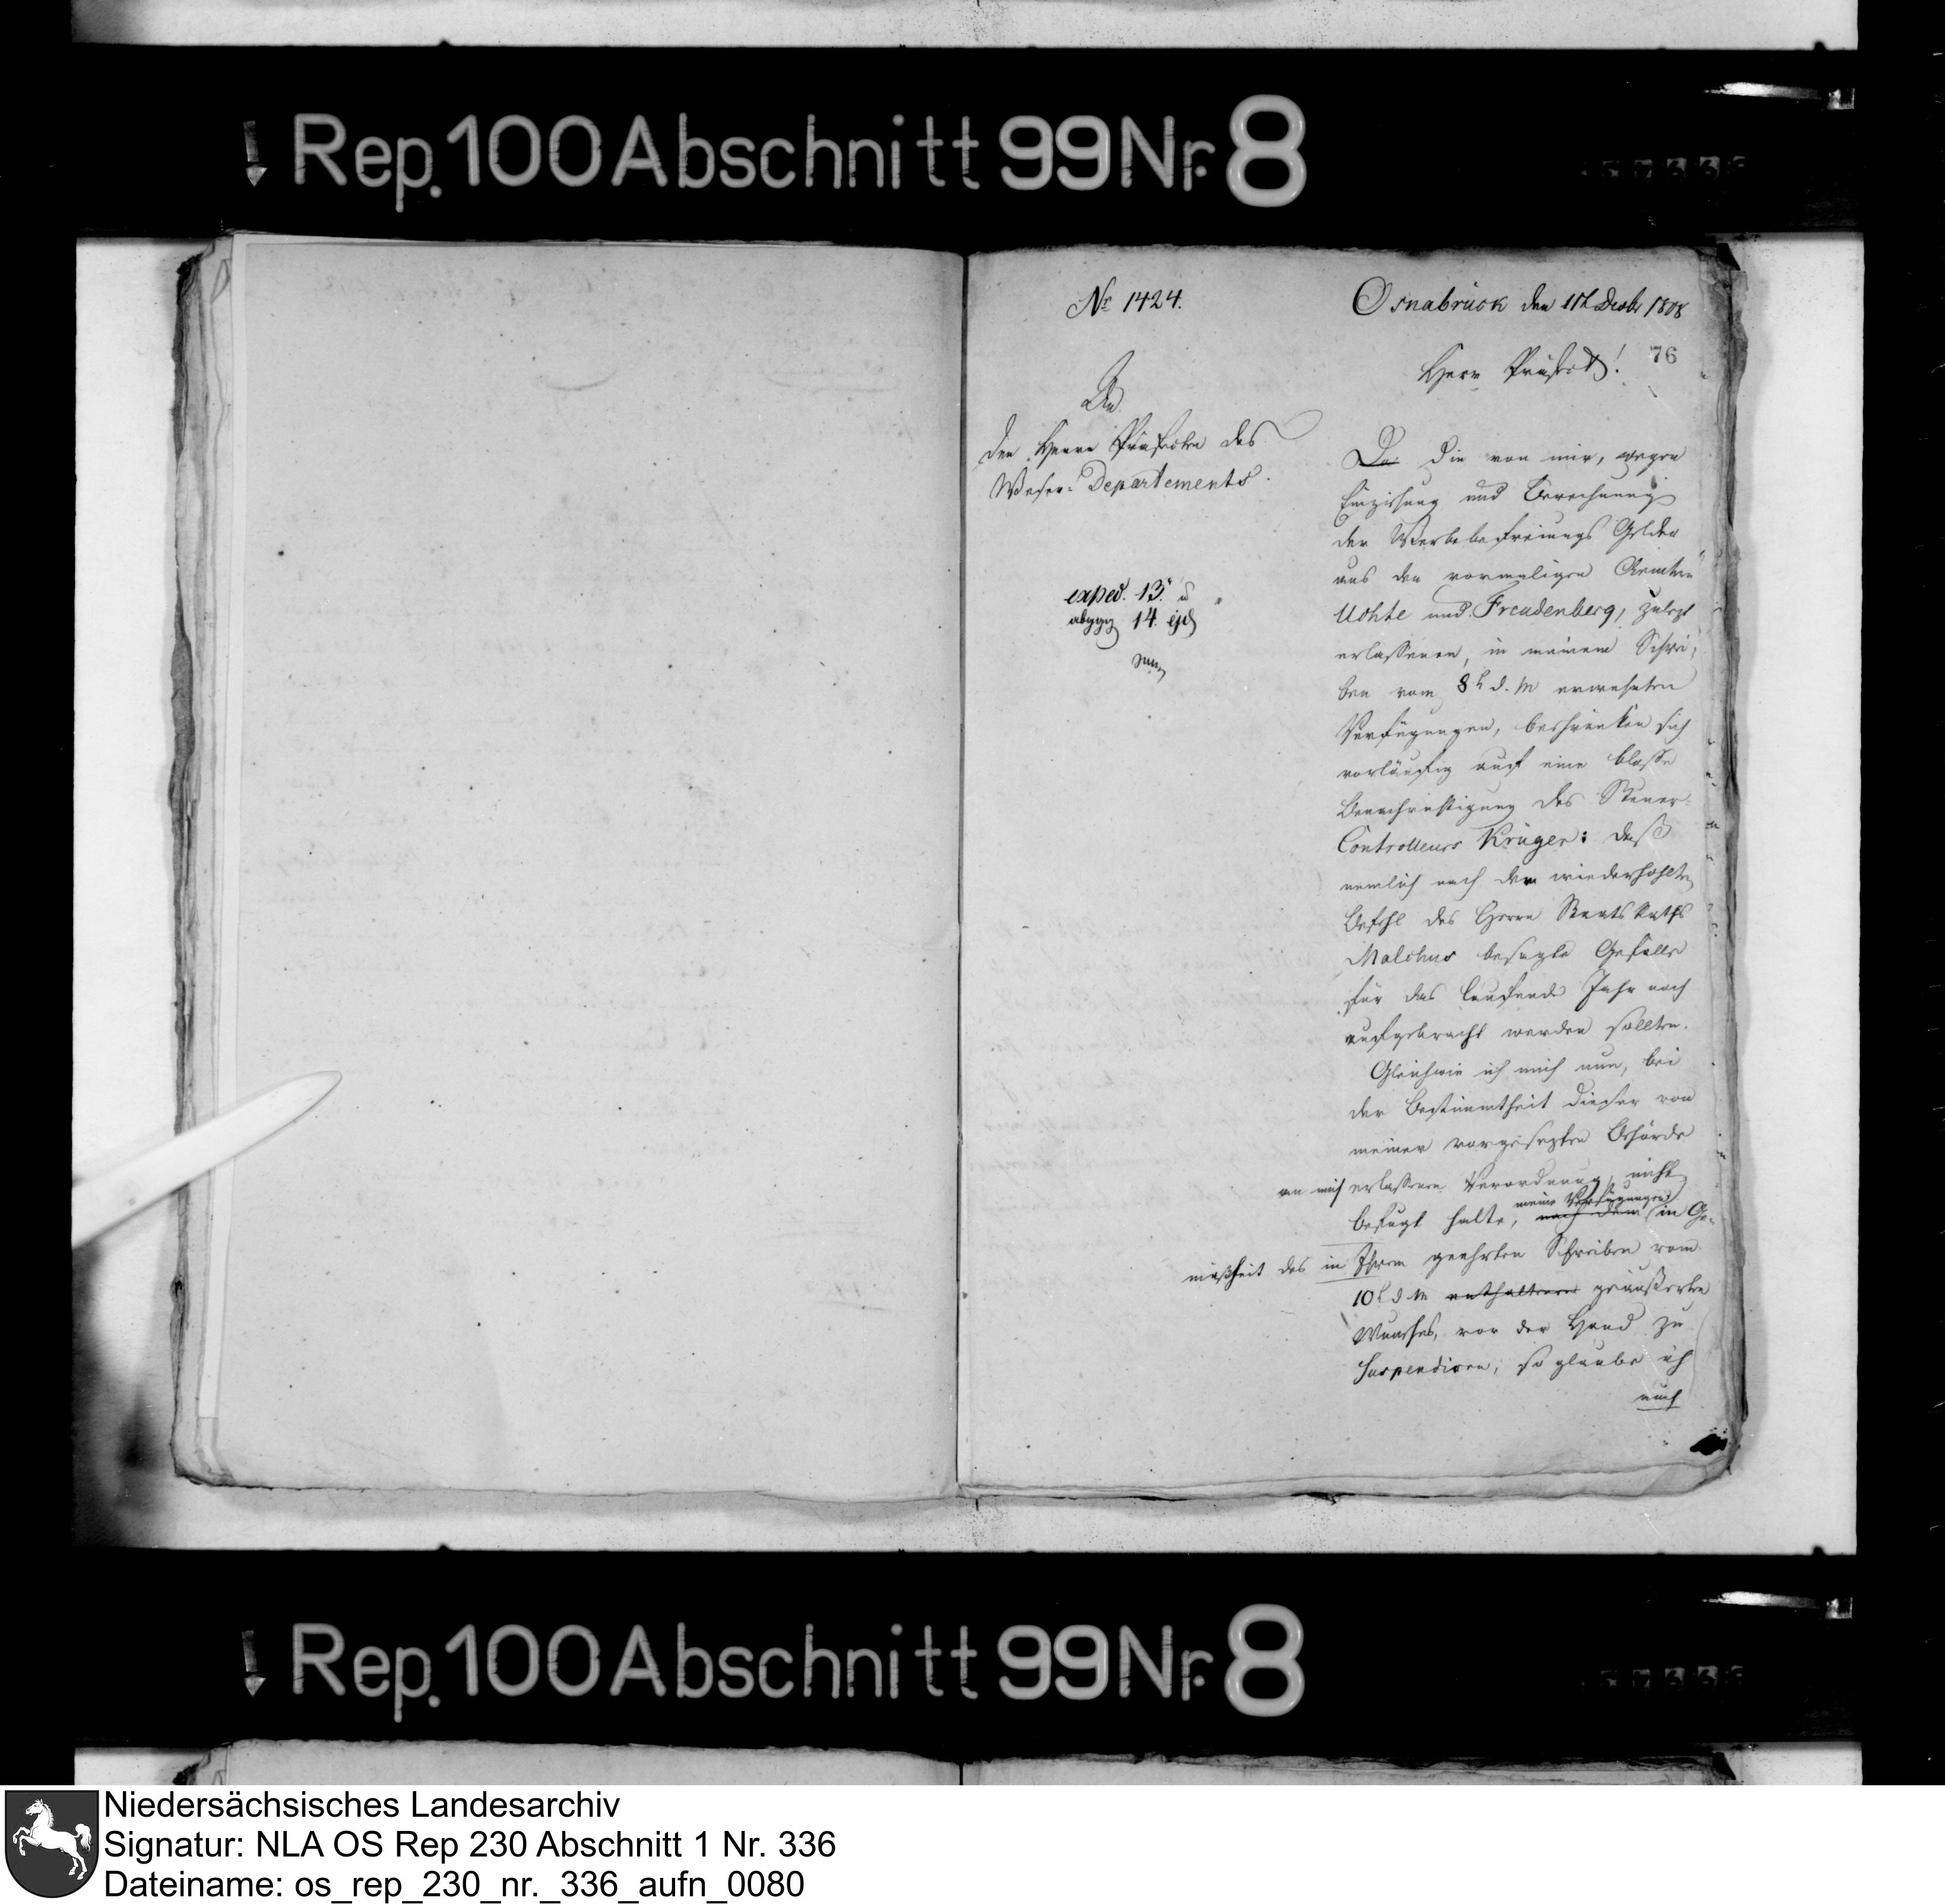 Rep. 100 Abschnitt 99 Nr. 8
No 1424.
Osnabrück den 11t Decbr 1808
76
Herr Präfect!
An
den Herrn Präfecten des
Weser-Departements.
exped. 13. u
abggg 14. ejd
Da die von mir, wegen
Einziehung und Berechnung
der Werbebefreiungs Gelder
aus den vormaligen Aemtern
Uchte und Freudenberg, zulezt
erlassenen, in meinem Schrei-
ben vom 8t d. M erwehnten
Verfügungen, beschränken sich
vorläufig auf eine blosse
Benachrichtigung des Steuer-
Controlleurs Krüger: daß
nemlich nach dem wiederhohlten
Befehl des Herrn Staats Raths
Malchus besagte Gefälle
für das laufende Jahr noch
aufgebracht werden sollten.
Gleichwie ich mich nun, bei
der Bestimmtheit dieser von
meiner vorgesezten Behörde
an mich erlassenen Verordnung, nicht
meine Verfügungen
befugt halte, nach dem (in Ge-
mäßheit des in Ihrem geehrten Schreiben vom
10t d M enthaltenen geäußerten
Wunsches, vor der Hand zu
suspendiren; so glaube ich
auch
Rep. 100 Abschnitt 99 Nr. 8
Niedersächsisches Landesarchiv
Signatur: NLA OS Rep 230 Abschnitt 1 Nr. 336
Dateiname: os_rep_230_nr._336_aufn_0080